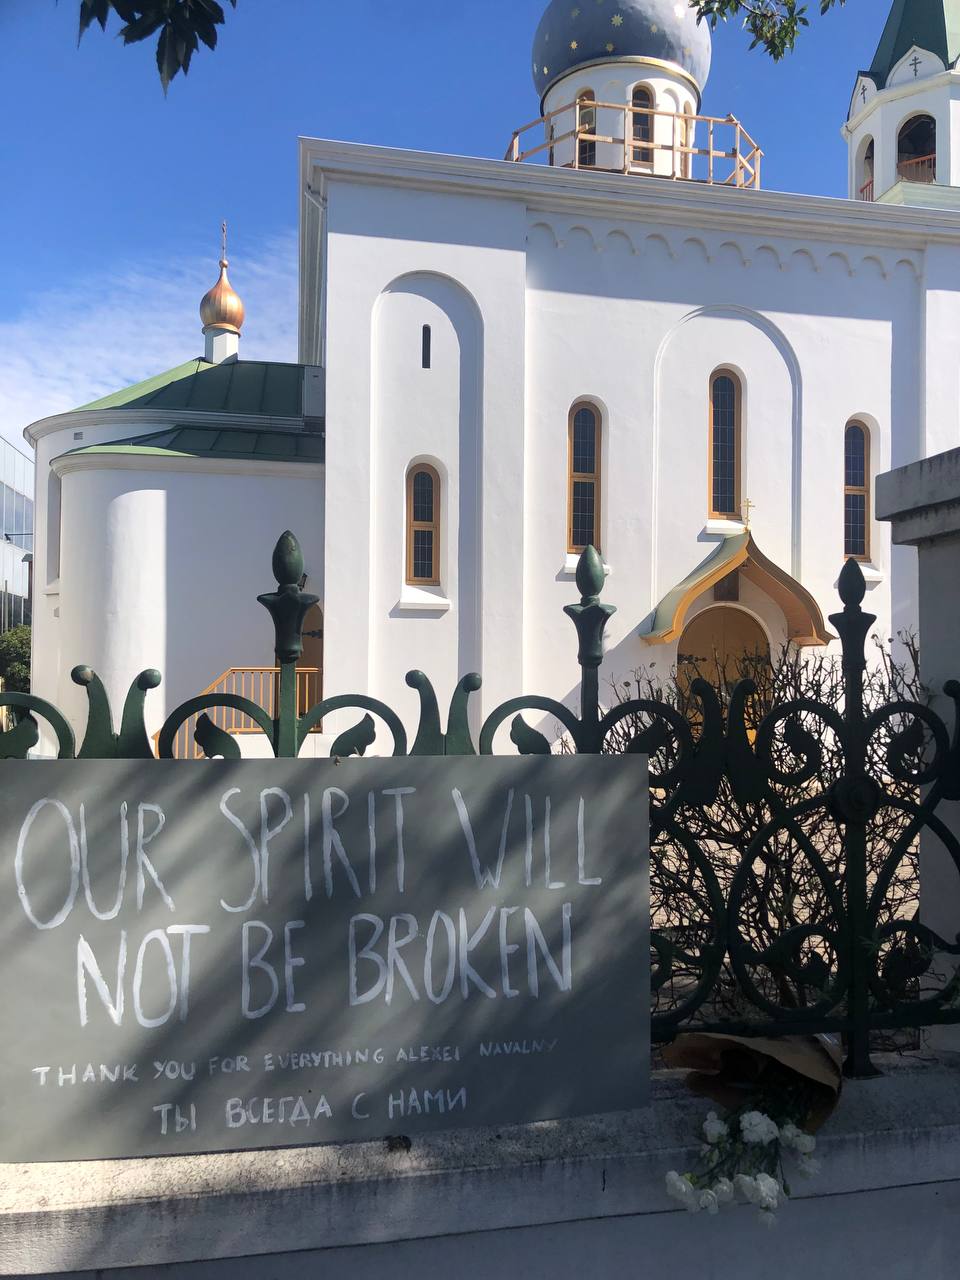 OUR SPIRIT WILL
NOT BE BROKEN
THANK YOU FOR EVERYTHING ALEXEI NAVALNY
ТЫ ВСЕГДА С НАМИ